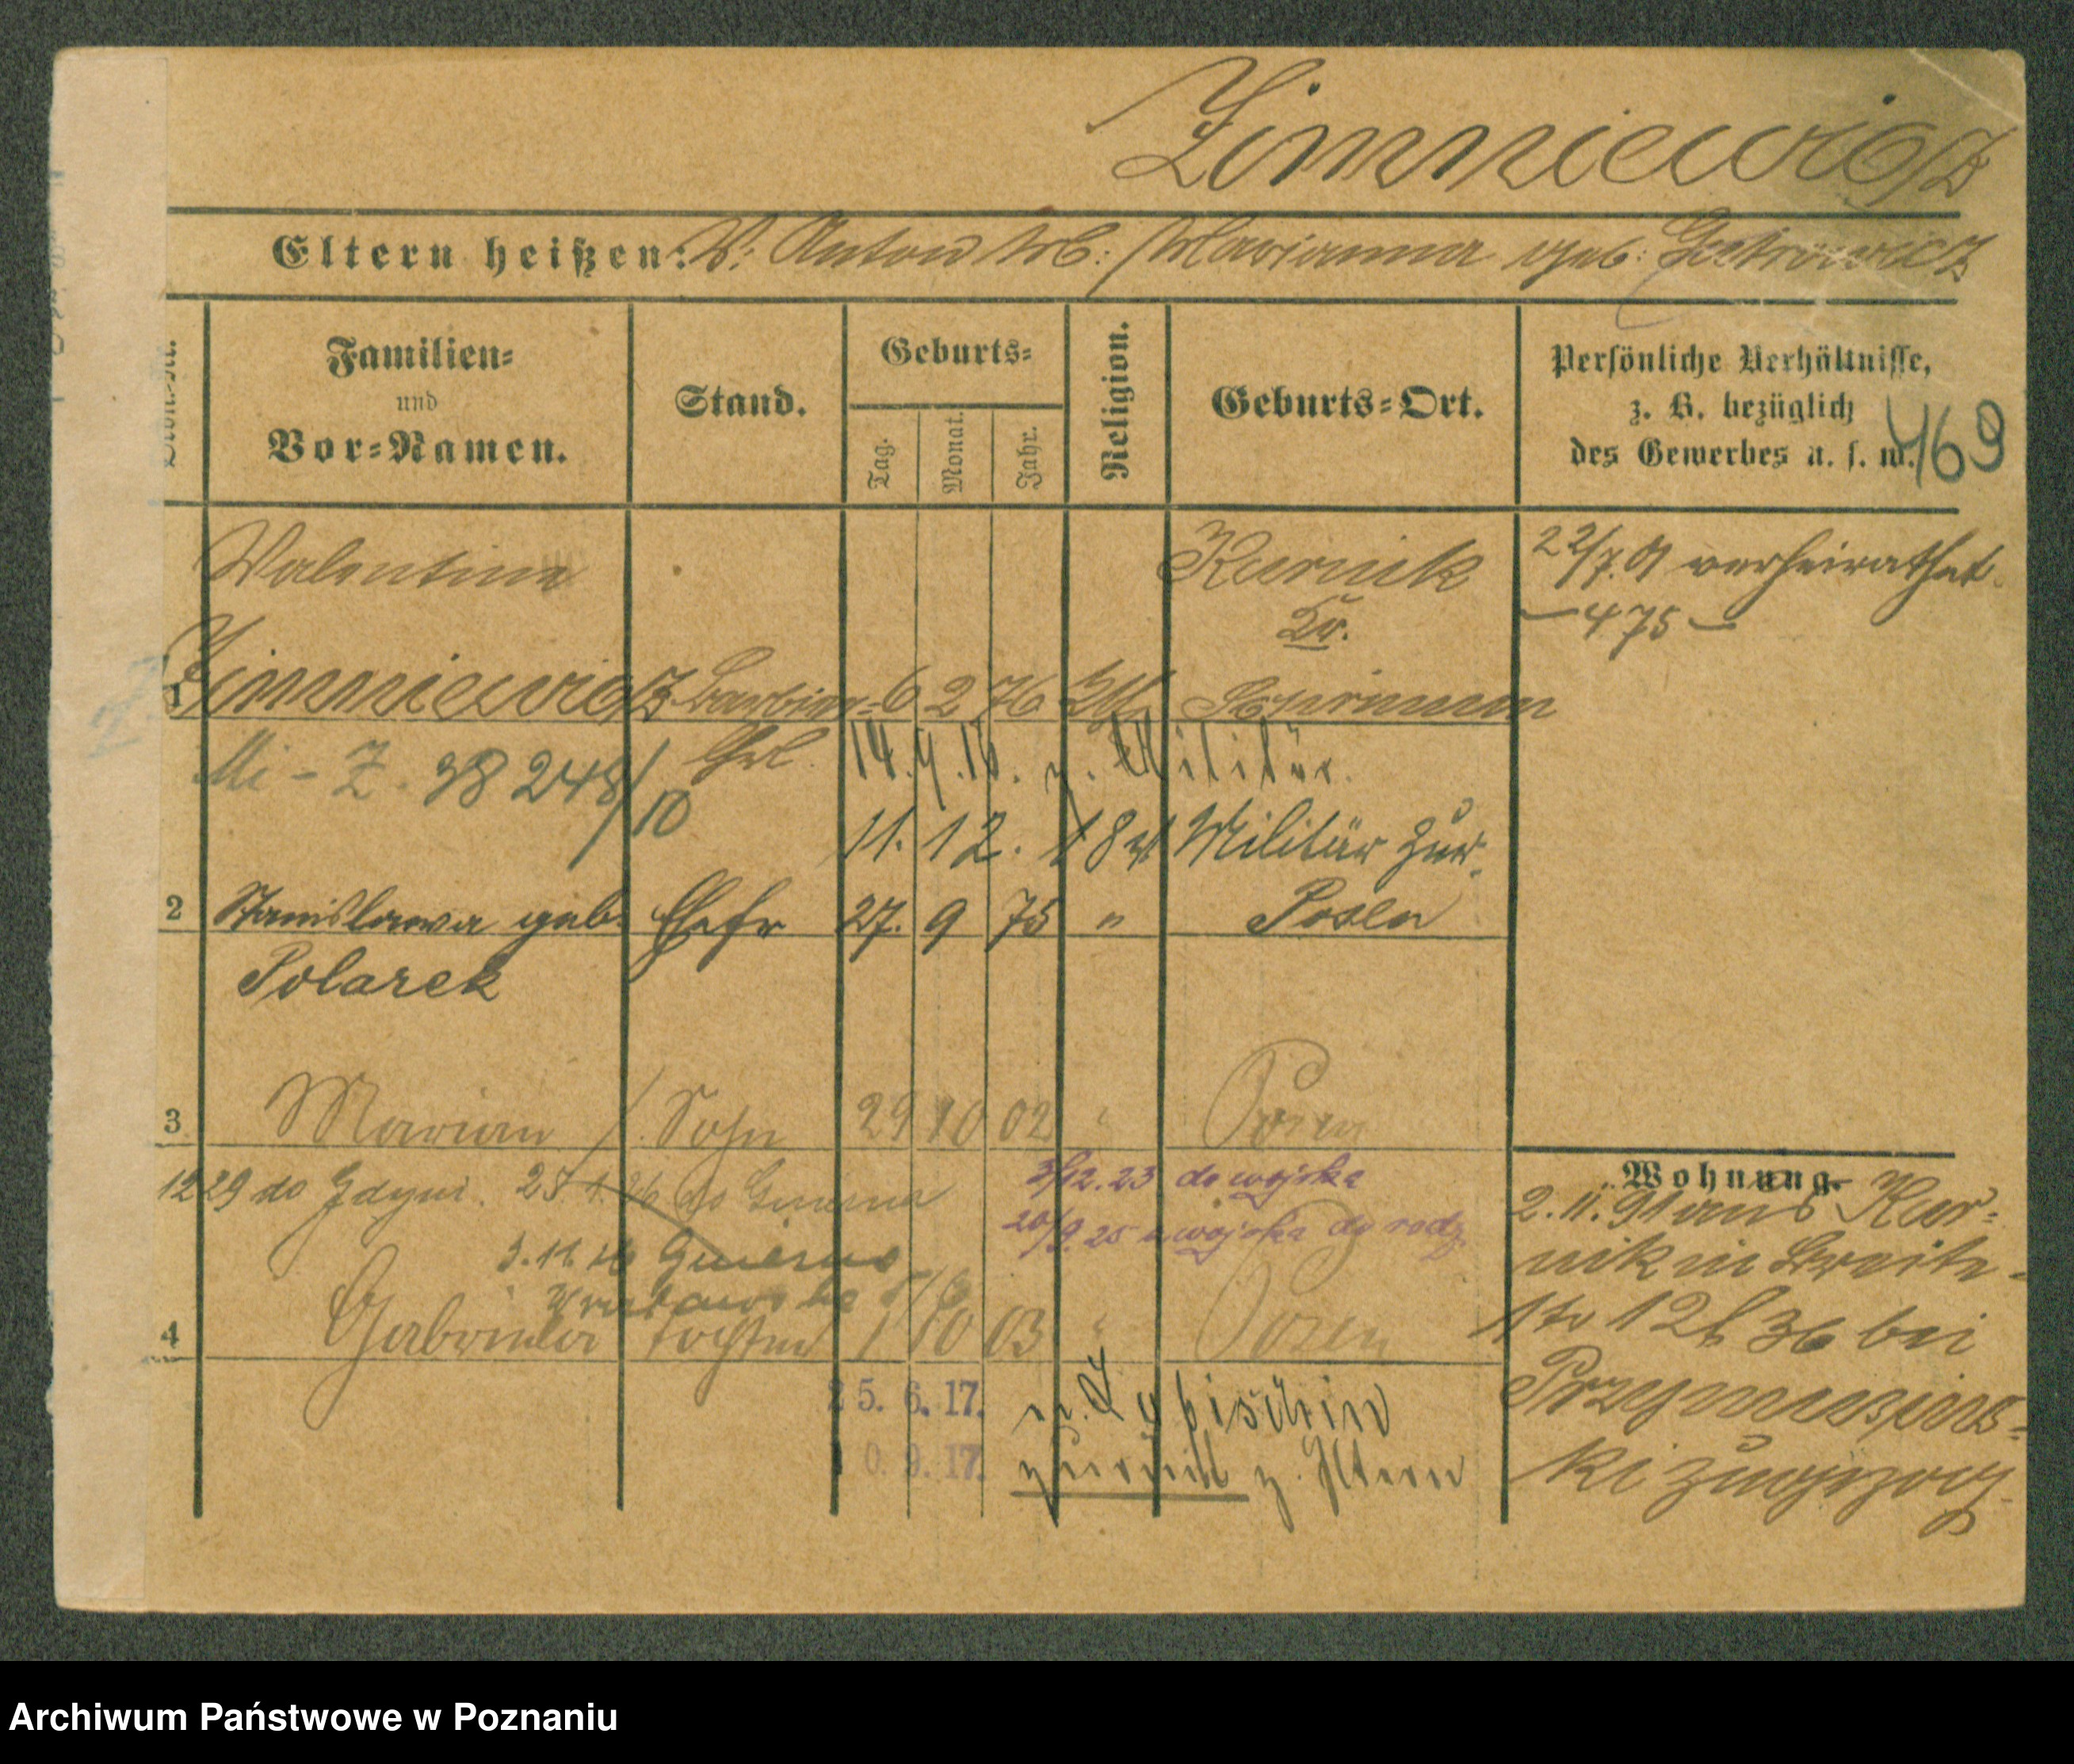 Zimniewicz
Eltern heißen: V: Anton M: Marianna geb:
Pers.-Nr.
Familien-
und
Vor-Namen.
Stand.
Geburts-
Tag.
Monat.
Jahr.
Religion.
Geburts-Ort.
Persönliche Verhältnisse,
z. B. bezüglich
des Gewerbes u. s. w.
469
Valentin
Kurnik
Kr.
22/7. 01 verheirathet.
— 475 —
1 Zimniewicz Barbier- 6 2 76 kth Schrimm
Geh.
Mi - Z. 38 248/10
14. 9. 16. z. Militär.
11. 12. 18 v Militär zur.
2 Stanislawa geb. Ehefr 27. 9 75 " Posen
Polarek
3 Marian Sohn 29 10 02 " Posen
12 29 do Gdyni. 25 1. 26 do Gniezna
3/12. 23 do wojska
20/9. 25 z wojska do rodz.
3. 11. 26 Gniezno
4 Tochter 1 10 03 " Posen
25. 6. 17.
10. 9. 17. zurück z. Eltern
Wohnung.
2. 11. 91 aus Kur-
nik in Breite-
str 12 b 36 bei
ki zugezog.
Archiwum Państwowe w Poznaniu